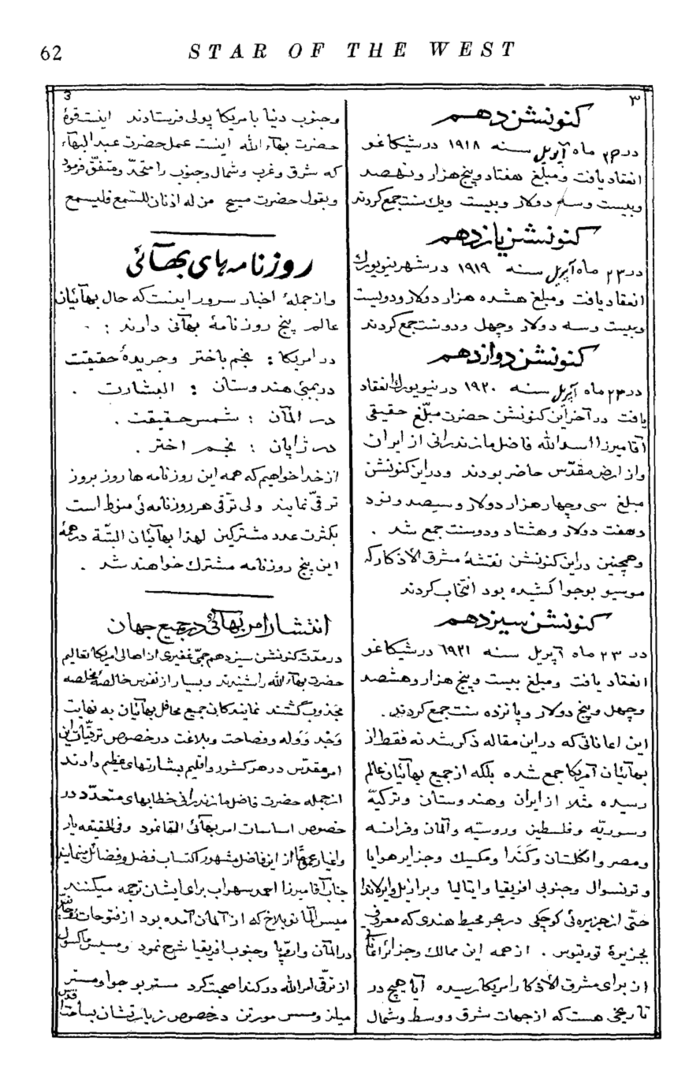 62
STAR OF THE WEST
۳
کنونشن دهم
در ۲۳ ماه آپریل سنه ۱۹۱۸ در شیکاغو
انعقاد یافت و مبلغ هفتاد و پنج هزار و نهصد
و بیست و سه دولار و بیست و یک سنت جمع کردند
کنونشن یازدهم
در ۲۳ ماه آپریل سنه ۱۹۱۹ در شهر نیویورک
انعقاد یافت و مبلغ هشده هزار دولار و دویست
و بیست و سه دولار و چهل و دو سنت جمع کردند
کنونشن دوازدهم
در ۲۳ ماه آپریل سنه ۱۹۲۰ در نیویورک انعقاد
یافت در آخر این کنونشن حضرت مبلّغ حقیقی
آقا میرزا اسدالله فاضل مازندرانی از ایران
و از ارض مقدّس حاضر بودند و در این کنونشن
مبلغ سی و چهار هزار دولار و سیصد و نود
و هفت دولار و هشتاد و دو سنت جمع شد .
و همچنین در این کنونشن نقشهٔ مشرق الأذکار که
موسیو بورجوا کشیده بود انتخاب کردند
کنونشن سیزدهم
در ۲۳ ماه آپریل سنه ۱۹۲۱ در شیکاغو
انعقاد یافت و مبلغ بیست و پنج هزار و هشصد
و چهل و پنج دولار و پانزده سنت جمع کردند .
این اعاناتی که در این مقاله ذکر شد نه فقط از
بهائیان آمریکا جمع شده بلکه از جمیع بهائیان عالم
رسیده مثلا از ایران و هندوستان و ترکیّه
و سوریّه و فلسطین و روسیّه و آلمان و فرانسه
و مصر و انگلستان و کَنَدا و مکسیک و جزایر هوایا
و ترنسوال و جنوبی افریقا و ایتالیا و برازیل و ایرلاندا
حتّی از جزیره ئی کوچکی در بحر محیط هندی که معروف
بجزیرهٔ تورتیوس . از همه این ممالک و جزائر اعانه
از برای مشرق الأذکار امریکا رسیده آیا هیچ در
تاریخی هست که از جهات شرق و وسط و شمال
3
و جنوب دنیا با مریکا پولی فرستادند اینست قوهٔ
حضرت بهاءالله اینست عمل حضرت عبدالبهاء
که شرق و غرب و شمال و جنوب را متحّد و متفّق فرمود
و بقول حضرت مسیح من له اذنان للسّمع فلیسمع
روزنامه های بهائی
و از جملهٔ اخبار سرور اینست که حال بهائیان
عالم پنج روزنامهٔ بهائی دارند : .
در امریکا : نجم باختر و جریدهٔ حقیقت
در بمبئی هندوستان : البشارت .
در آلمان : شمس حقیقت .
در ژاپان : نجم اختر .
از خدا خواهیم که همه این روزنامه ها روز بروز
ترقّی نمایند ولی ترقّی هر روزنامه ئی منوط است
بکثرت عدد مشترکین لهذا بهائیان البتّه در همهٔ
این پنج روزنامه مشترک خواهند شد .
انتشار امر بهائی در جمیع جهان
در مدّت کنونشن سیزدهم جمّ غفیری از اهالی امریکا تعالیم
حضرت بهاءالله را شنیدند و بسیار از نفوس خالصهٔ مخلصه
مجذوب گشتند نمایندکان جمیع محافل بهائیان به نهایت
وَجْد و وَله و فصاحت و بلاغت در خصوص ترقّیات این
امر مقدّس در هر کشور و اقلیم بشارتهای عظیم دادند
از جمله حضرت فاضل مازندرانی خطابهای متعدّد در
خصوص اساسات امر بهائی القا نمود و فی الحقیقه یار
و اغیار عموماً از این فاضل مشهور اکتساب فضل و فضائل مینمایند
جناب آقا میرزا احمد سهراب برای ایشان ترجمه میکنند
میس آلما نوبلاخ که از آلمان آمده بود از فتوحات
در آلمان و اروپا و جنوب افریقا شرح نمود و مسیس ماکسول
از ترقّی امرالله در کندا صحبت کرد مستر بورجوا و مستر
میلز و مسس مورتن در خصوص زیارتشان بساحت